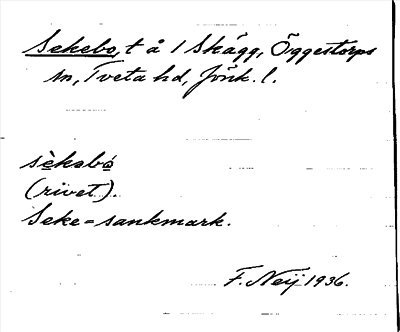 Sekebo, t å 1 Skägg, Öggestorps
sn, Tveta hd, Jönk. l.
sèkəbo
(rivet).
Seke = sankmark.
F. Neij 1936.